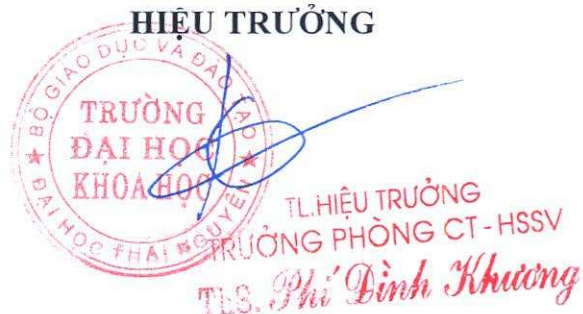 HIỆU TRƯỞNG
BỘ GIÁO DỤC VÀ ĐÀO TẠO
TRƯỜNG
ĐẠI HỌC
KHOA HỌC
ĐẠI HỌC THÁI NGUYÊN
TL.HIỆU TRƯỞNG
TRƯỞNG PHÒNG CT - HSSV
ThS. Phí Đình Khương